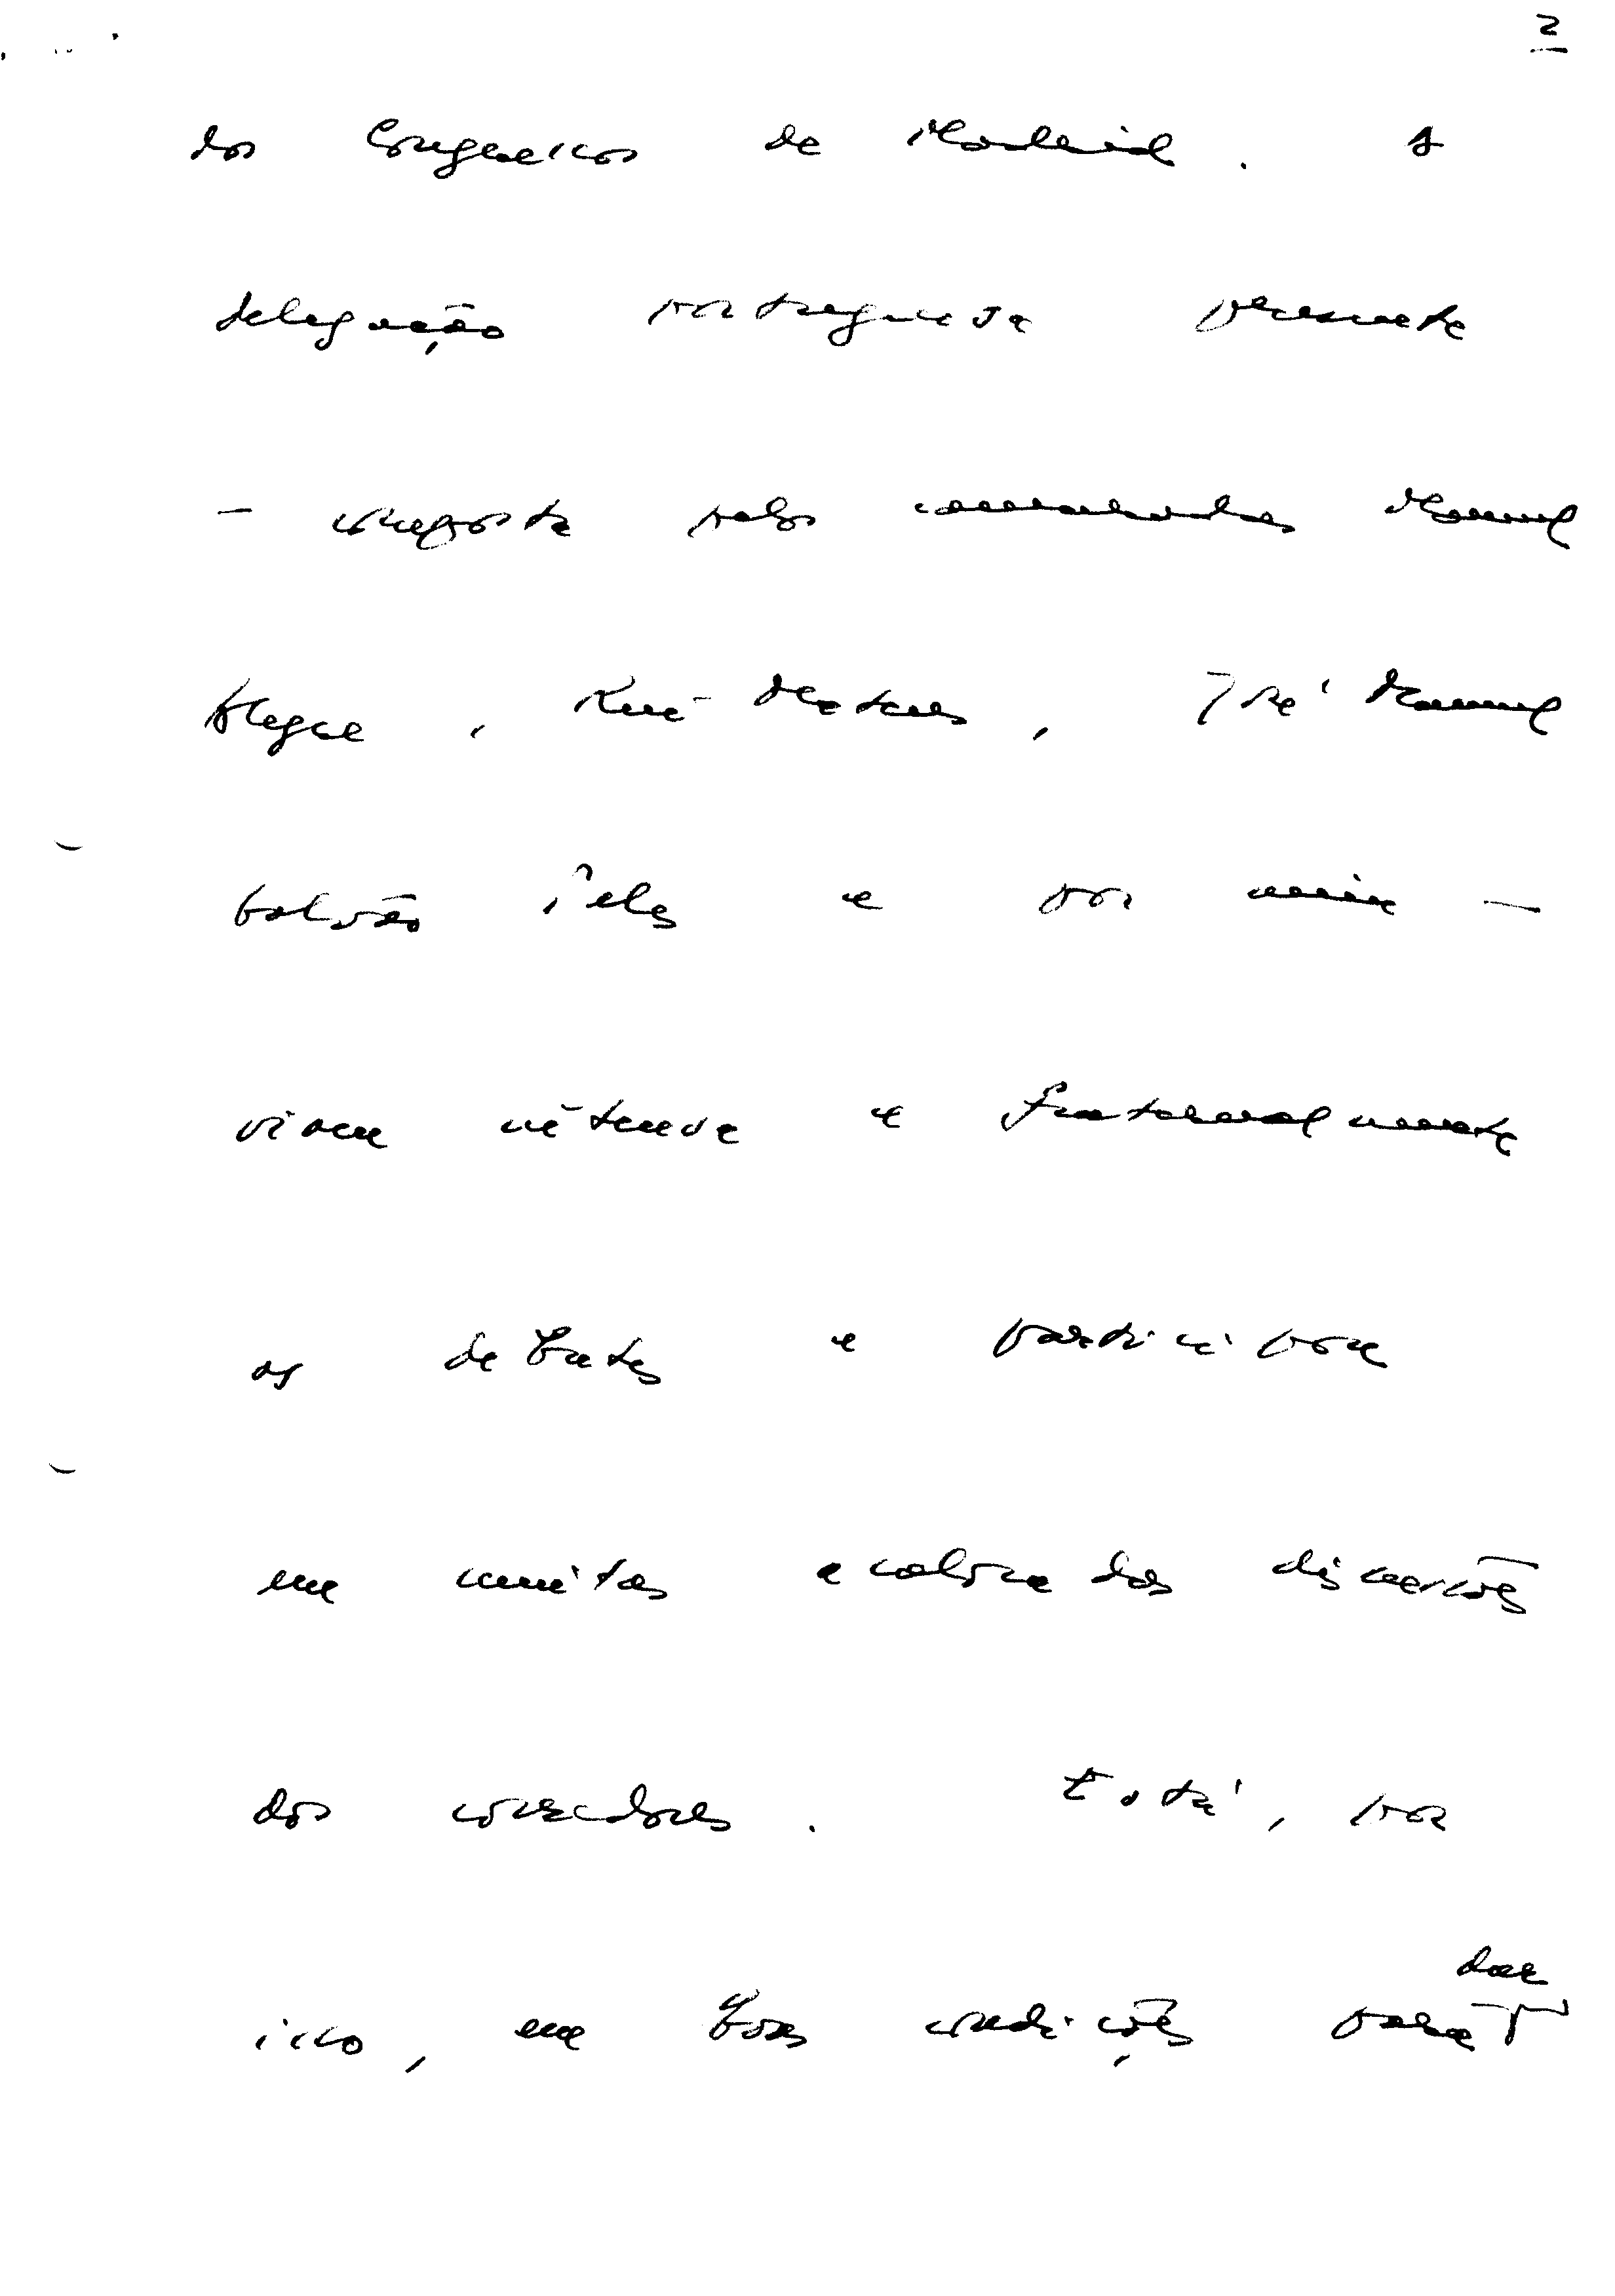 2
dos Congressos de Madrid. A
delegação portuguesa presente
- composta pelos camaradas Manuel
Alegre, Rui Mateus, José Manuel
Galvão Teles e por mim -
viveu intensa e fraternalmente
os debates e participou
em muitas e acaloradas discussões
dos corredores. Está, por
dar
isso, em boas condições para